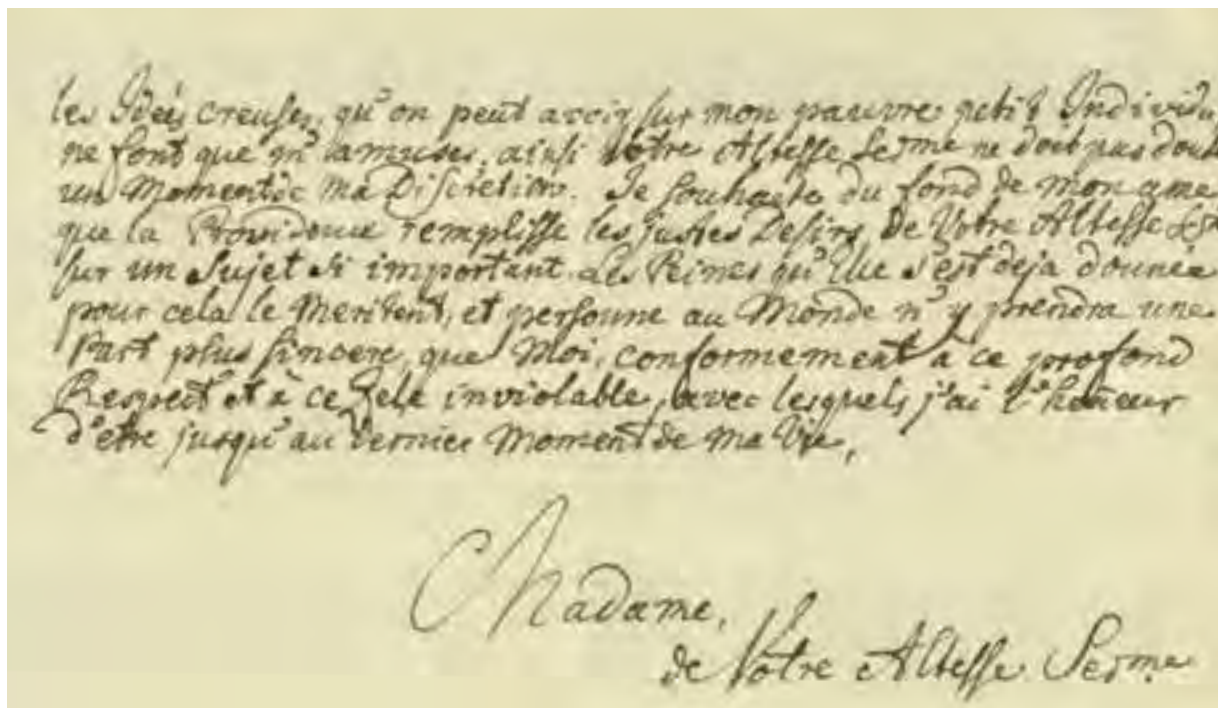 les Idées creuses, qu'on peut avoir sur mon pauvre petit Individu
ne font que m'amuser, ainsi Votre Altesse Serme ne doit pas dout
un Moment de ma Discretion. Je souhaite du fond de mon ame
que la Providence remplisse les justes Desirs de Votre Altesse
sur un Sujet si important. Les Peines qu'Elle s'est deja donnée
pour cela le meritent, et personne au Monde n'y prendra une
Part plus sincere, que Moi, conformement à ce profond
Respect et à ce Zele inviolable, avec lesquels j'ai l'honneur
d'etre jusqu'au dernier Moment de ma Vie,
Madame,
de Votre Altesse Serme